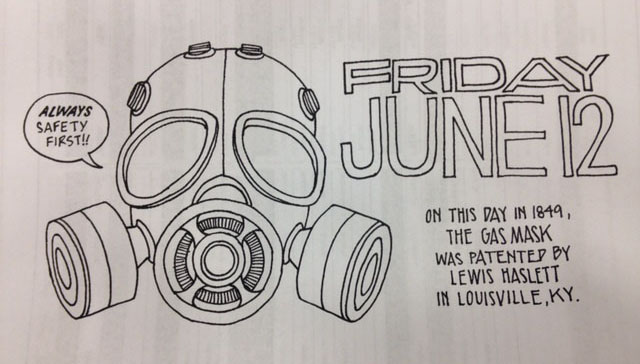 ALWAYS
SAFETY
FIRST!!
FRIDAY
JUNE 12
ON THIS DAY IN 1849,
THE GAS MASK
WAS PATENTED BY
LEWIS HASLETT
IN LOUISVILLE, KY.